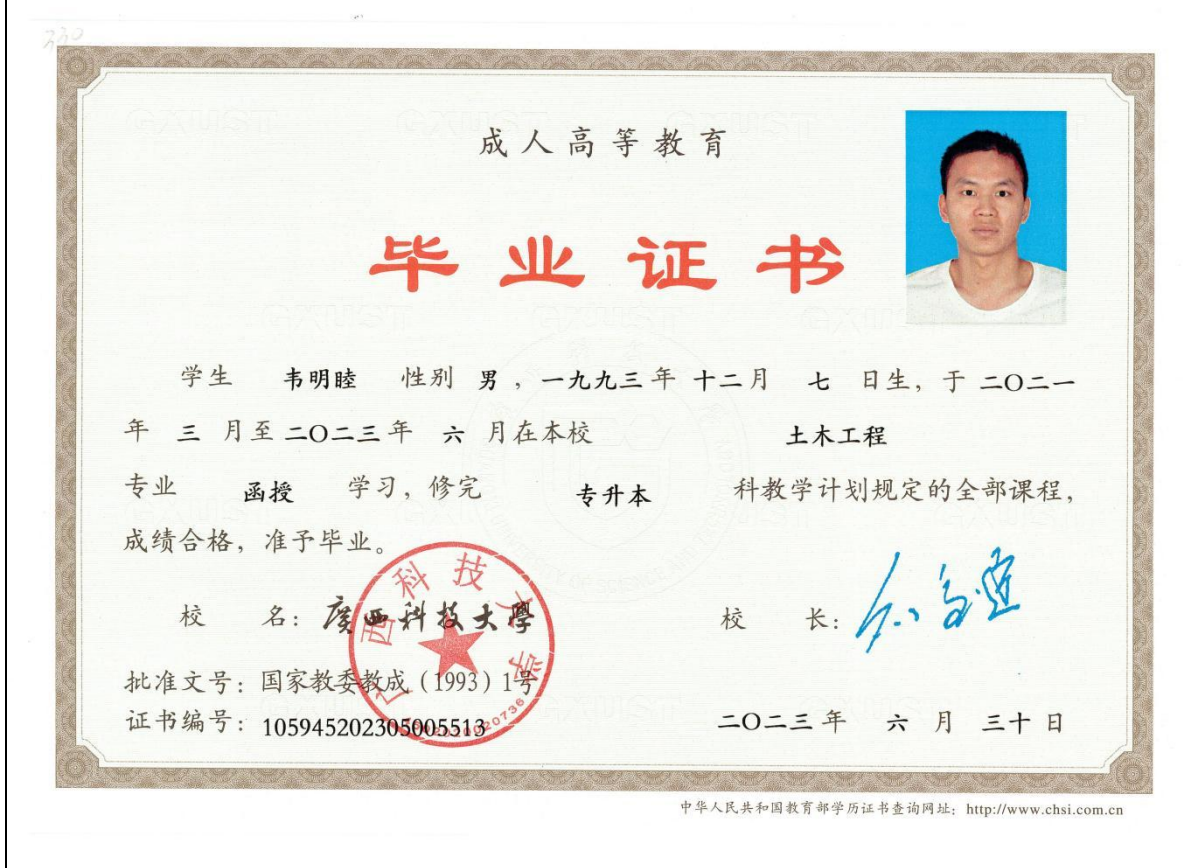 330
成人高等教育
毕业证书
学生 韦明睦 性别 男，一九九三年 十二月 七 日生，于 二〇二一
年 三 月至 二〇二三年 六 月在本校 土木工程
专业 函授 学习，修完 专升本 科教学计划规定的全部课程，
成绩合格，准予毕业。
校 名：廣西科技大學
广西科技大学
校 长：
批准文号：国家教委教成（1993）1号
证书编号：105945202305005513
二〇二三年 六 月 三十 日
中华人民共和国教育部学历证书查询网址：http://www.chsi.com.cn